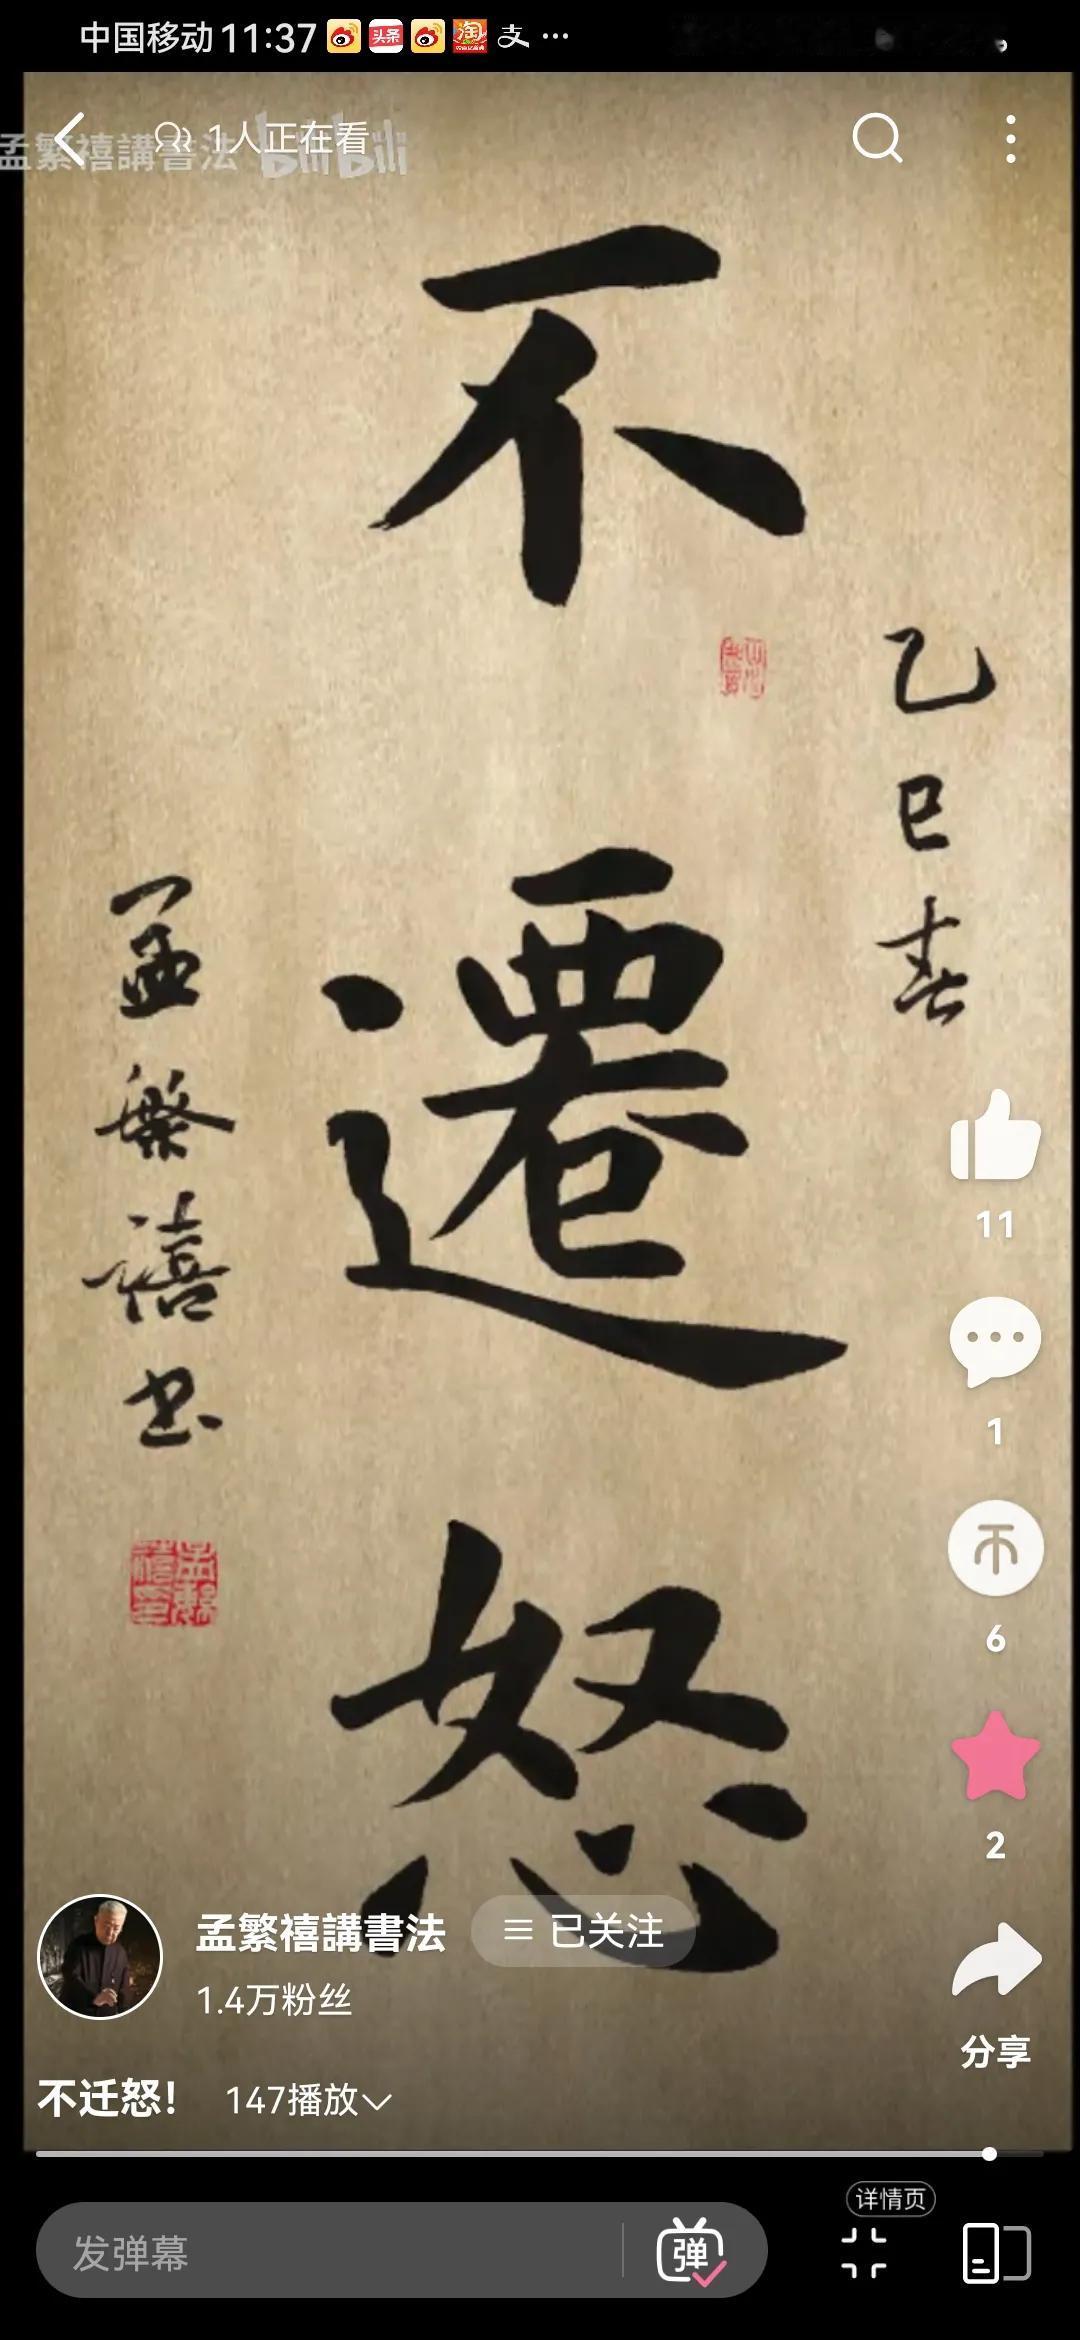 中国移动 11:37 头条 淘 支 …
孟繁禧講書法 bilibili
1人正在看
不遷怒
乙巳春
孟繁禧书
11
1
6
2
分享
孟繁禧講書法
已关注
1.4万粉丝
不迁怒!
147播放
详情页
发弹幕
弹